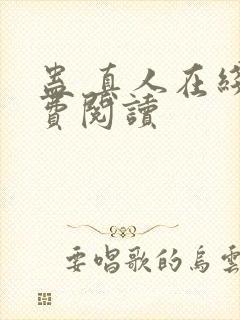 蛊真人在綫
費閱讀
要唱歌的烏雲